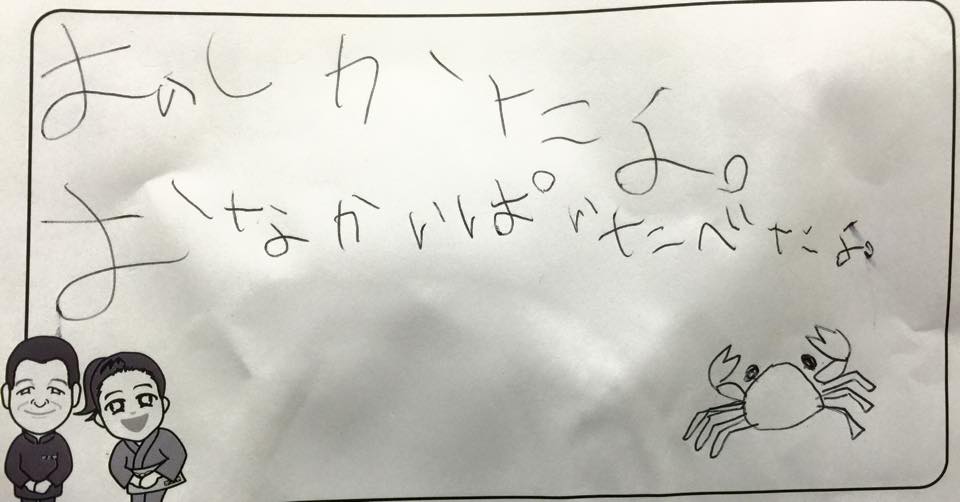 おいしかたよ。
おなかいぱいたべたよ。